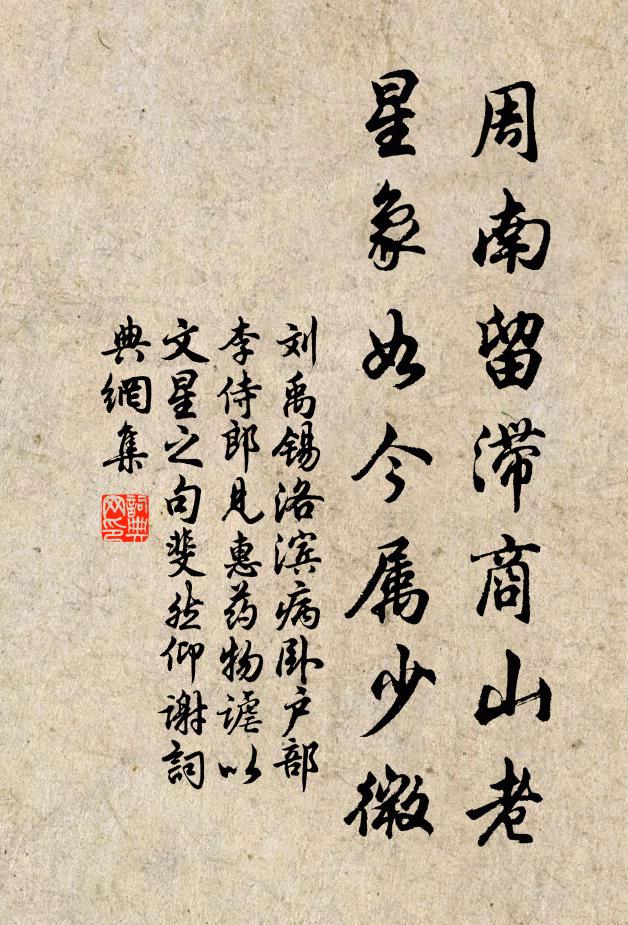 周南留滞商山老
星象如今属少微
刘禹锡洛滨病卧户部
李侍郎见惠药物谑以
文星之句斐然仰谢詞
典網集
詞典網印